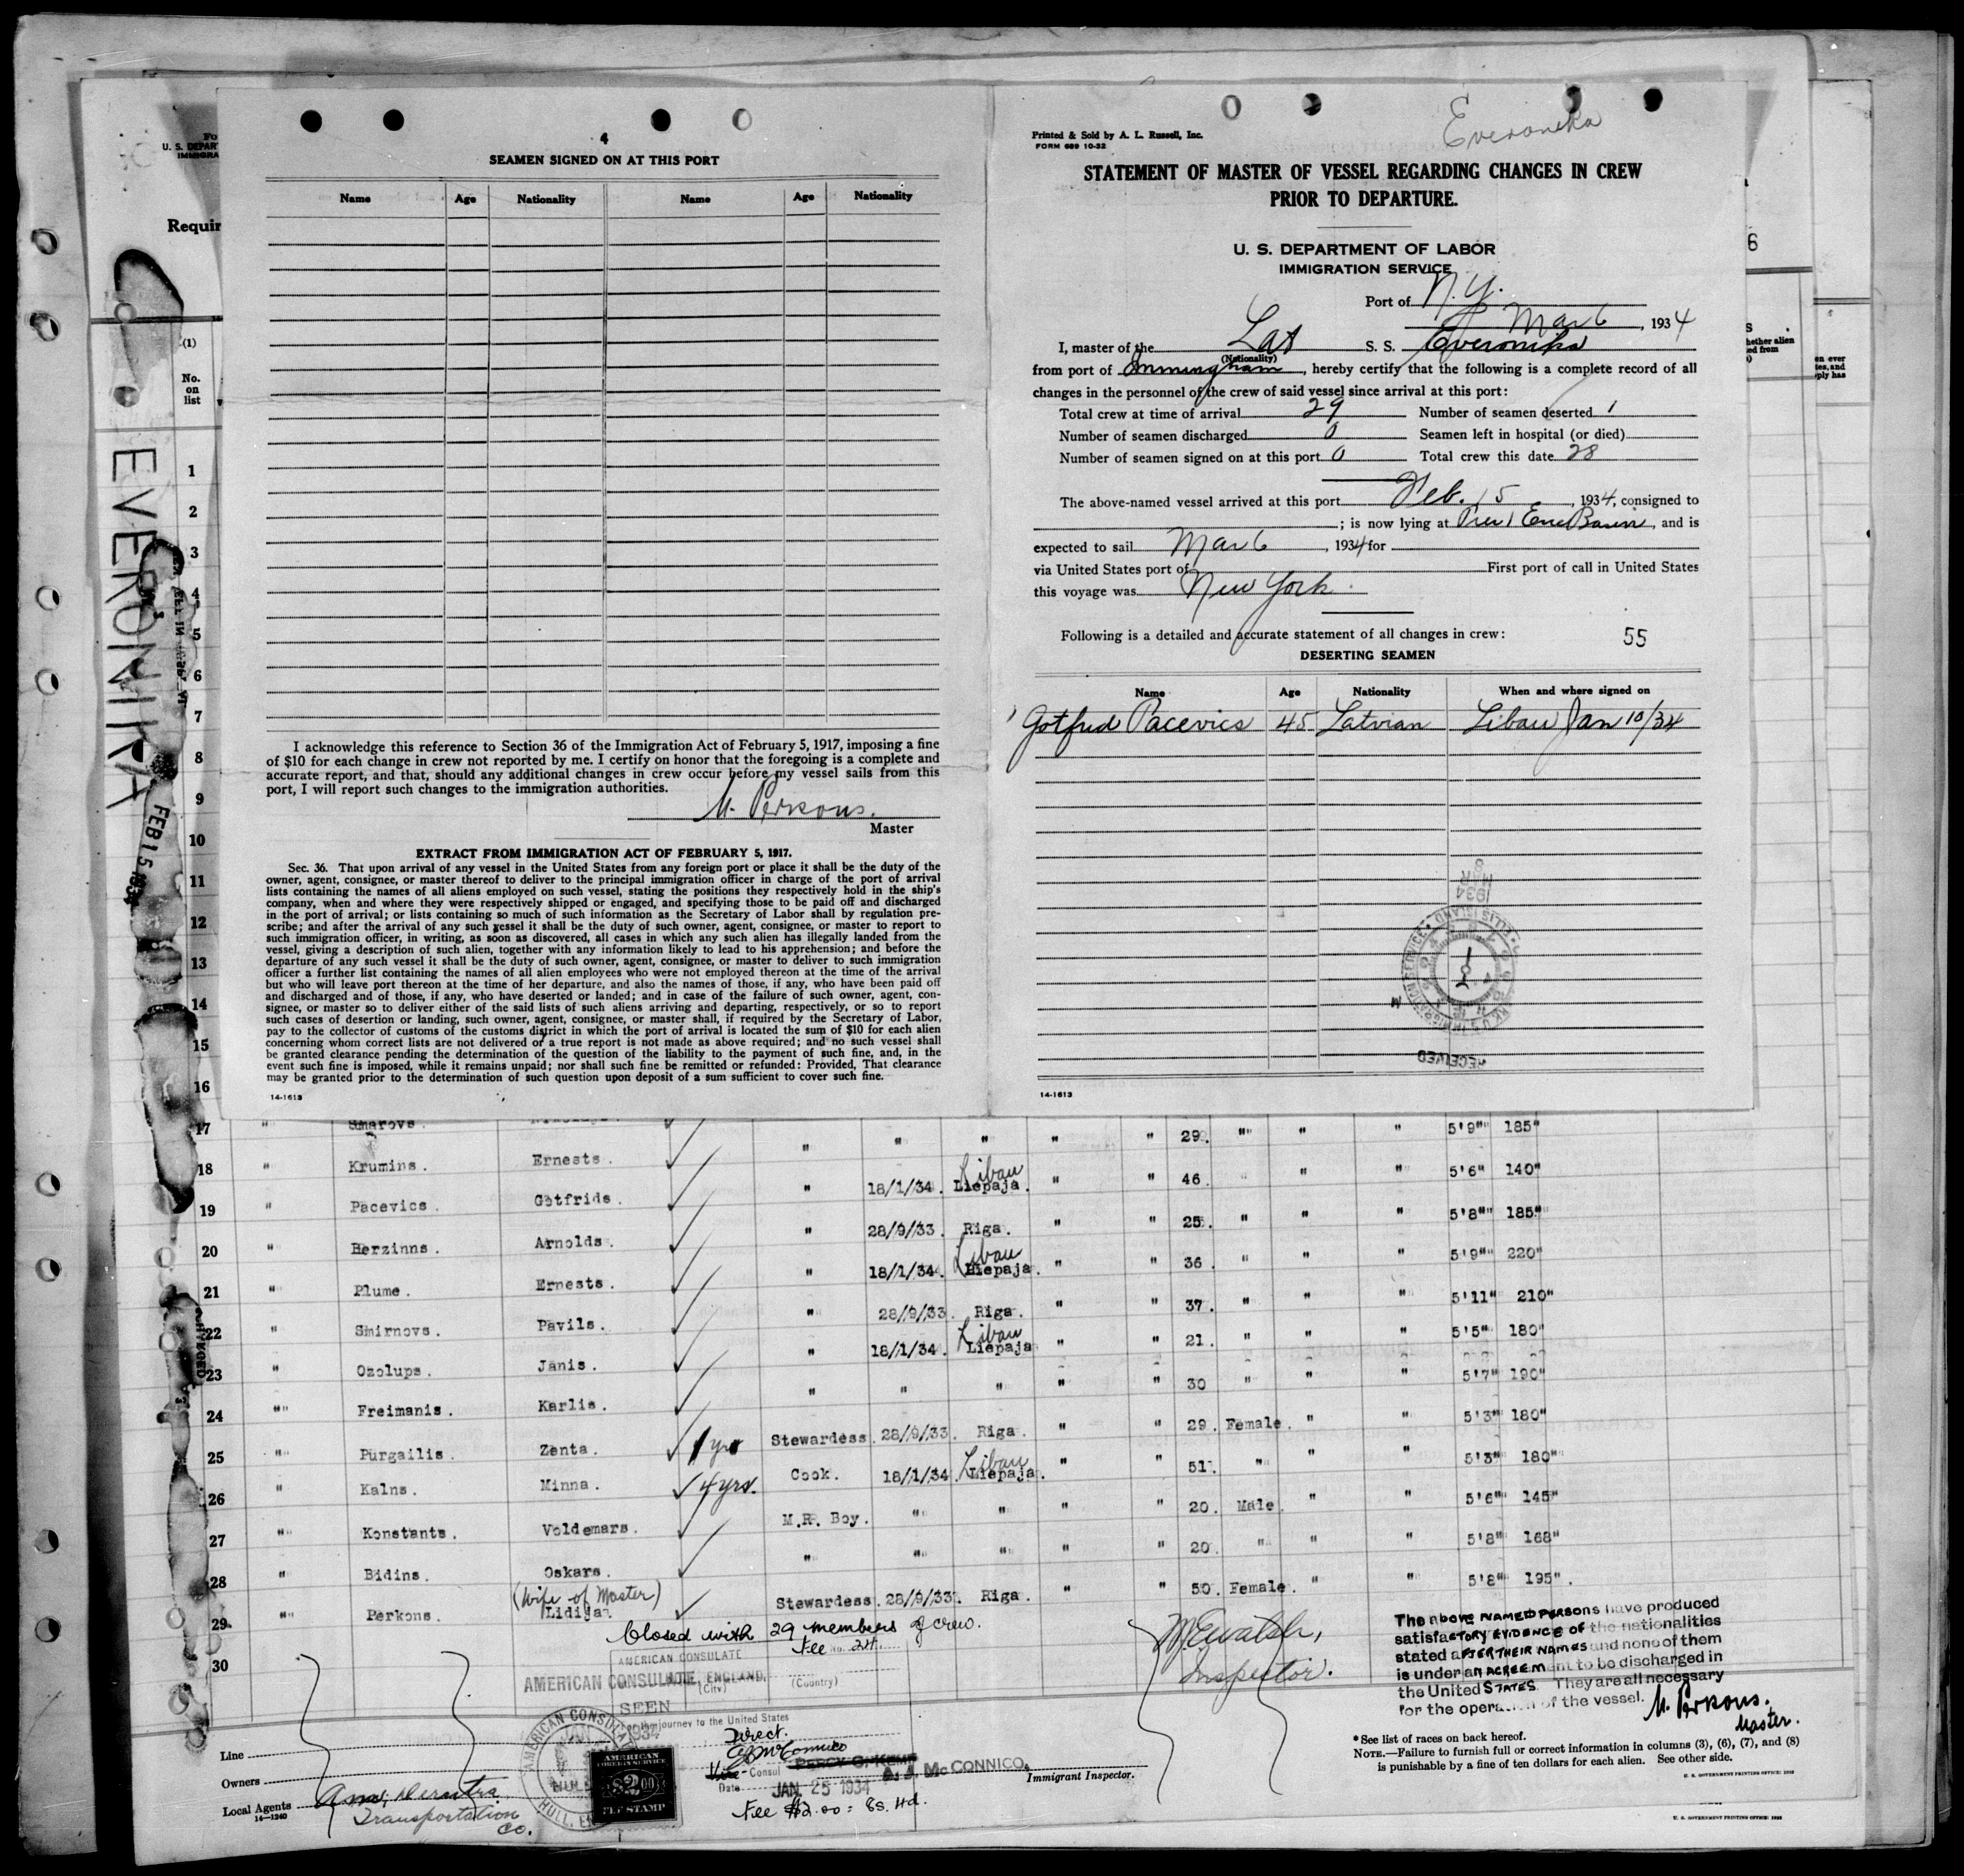 4
SEAMEN SIGNED ON AT THIS PORT
Name Age Nationality Name Age Nationality
I acknowledge this reference to Section 36 of the Immigration Act of February 5, 1917, imposing a fine
of $10 for each change in crew not reported by me. I certify on honor that the foregoing is a complete and
accurate report, and that, should any additional changes in crew occur before my vessel sails from this
port, I will report such changes to the immigration authorities.
M. Perkons.
Master
EXTRACT FROM IMMIGRATION ACT OF FEBRUARY 5, 1917.
Sec. 36. That upon arrival of any vessel in the United States from any foreign port or place it shall be the duty of the
owner, agent, consignee, or master thereof to deliver to the principal immigration officer in charge of the port of arrival
lists containing the names of all aliens employed on such vessel, stating the positions they respectively hold in the ship's
company, when and where they were respectively shipped or engaged, and specifying those to be paid off and discharged
in the port of arrival; or lists containing so much of such information as the Secretary of Labor shall by regulation pre-
scribe; and after the arrival of any such vessel it shall be the duty of such owner, agent, consignee, or master to report to
such immigration officer, in writing, as soon as discovered, all cases in which any such alien has illegally landed from the
vessel, giving a description of such alien, together with any information likely to lead to his apprehension; and before the
departure of any such vessel it shall be the duty of such owner, agent, consignee, or master to deliver to such immigration
officer a further list containing the names of all alien employees who were not employed thereon at the time of the arrival
but who will leave port thereon at the time of her departure, and also the names of those, if any, who have been paid off
and discharged and of those, if any, who have deserted or landed; and in case of the failure of such owner, agent, con-
signee, or master so to deliver either of the said lists of such aliens arriving and departing, respectively, or so to report
such cases of desertion or landing, such owner, agent, consignee, or master shall, if required by the Secretary of Labor,
pay to the collector of customs of the customs district in which the port of arrival is located the sum of $10 for each alien
concerning whom correct lists are not delivered or a true report is not made as above required; and no such vessel shall
be granted clearance pending the determination of the question of the liability to the payment of such fine, and, in the
event such fine is imposed, while it remains unpaid; nor shall such fine be remitted or refunded: Provided, That clearance
may be granted prior to the determination of such question upon deposit of a sum sufficient to cover such fine.
14-1613
Everonika
Printed & Sold by A. L. Russell, Inc.
FORM 689 10-32
STATEMENT OF MASTER OF VESSEL REGARDING CHANGES IN CREW
PRIOR TO DEPARTURE.
U. S. DEPARTMENT OF LABOR
IMMIGRATION SERVICE
Port of N.Y.
Mar 6, 1934
I, master of the Lat S. S. Everonika
(Nationality)
from port of Immingham, hereby certify that the following is a complete record of all
changes in the personnel of the crew of said vessel since arrival at this port:
Total crew at time of arrival 29 Number of seamen deserted 1
Number of seamen discharged 0 Seamen left in hospital (or died)
Number of seamen signed on at this port 0 Total crew this date 28
The above-named vessel arrived at this port Feb. 15, 1934, consigned to
; is now lying at Pier 1 Erie Basin, and is
expected to sail Mar 6, 1934 for
via United States port of First port of call in United States
this voyage was New York.
Following is a detailed and accurate statement of all changes in crew: 55
DESERTING SEAMEN
Name Age Nationality When and where signed on
1 Gotfrid Pacevics 45 Latvian Libau Jan 10/34
MAR 8 1934
RECEIVED
14-1613
U. S. DEPAR
IMMIGRA
Requir
(1)
No. on list
EVERONIKA
FEB 15 1934
6
1
2
3
4
5
6
7
8
9
10
11
12
13
14
15
16
17 " Smarovs. " " " " " 29. "" " " 5'9"" 185"
18 " Krumins. Ernests. " 18/1/34. Libau Liepaja. " " 46. " " " 5'6" 140"
19 " Pacevics. Gotfrids. " 28/9/33. Riga. " " 25. " " " 5'8"" 185"
20 " Berzinns. Arnolds. " 18/1/34. Libau Liepaja. " " 36. " " " 5'9"" 220"
21 " Plume. Ernests. " 28/9/33. Riga. " " 37. " " " 5'11" 210"
22 " Smirnovs. Pavils. " 18/1/34. Libau Liepaja " " 21. " " " 5'5" 180"
23 " Ozolups. Janis. " " " " " 30 " " " 5'7" 190"
24 " Freimanis. Karlis. Stewardess. 28/9/33. Riga. " " 29. Female. " " 5'3" 180"
25 " Purgailis. Zenta. 1 yr Cook. 18/1/34. Libau Liepaja. " " 51. " " " 5'3" 180"
26 " Kalns. Minna. 4 yrs. M.R. Boy. " " " " 20. Male. " " 5'6" 145"
27 " Konstants. Voldemars. " " " " " 20. " " " 5'8" 168"
28 " Bidins. Oskars. Stewardess. 28/9/33. Riga. " " 50. Female. " " 5'8" 195".
29 " Perkons. (Wife of Master) Lidija.
30
Closed with 29 members of crew.
Fee No. 24.
AMERICAN CONSULATE
AMERICAN CONSUL
HULL, ENGLAND.
(City) (Country)
SEEN
For the journey to the United States
Direct.
Vice-Consul PERCY G. KEMP A. J. McCONNICO.
Date JAN. 25 1934
Fee $2.00 = 8s. 4d.
AMERICAN FOREIGN SERVICE
$2.00
FEE STAMP
M Ewalsh,
Inspector.
Immigrant Inspector.
The above NAMED PERSONS have produced
satisfactory EVIDENCE OF the nationalities
stated AFTER THEIR NAMES and none of them
is under an AGREEMENT to be discharged in
the United STATES. They are all necessary
for the operation of the vessel. M. Perkons.
Master.
*See list of races on back hereof.
NOTE.—Failure to furnish full or correct information in columns (3), (6), (7), and (8)
is punishable by a fine of ten dollars for each alien. See other side.
U. S. GOVERNMENT PRINTING OFFICE: 1932
U. S. GOVERNMENT PRINTING OFFICE: 1932
Line
Owners
Local Agents
14—1240
Transportation
Co.